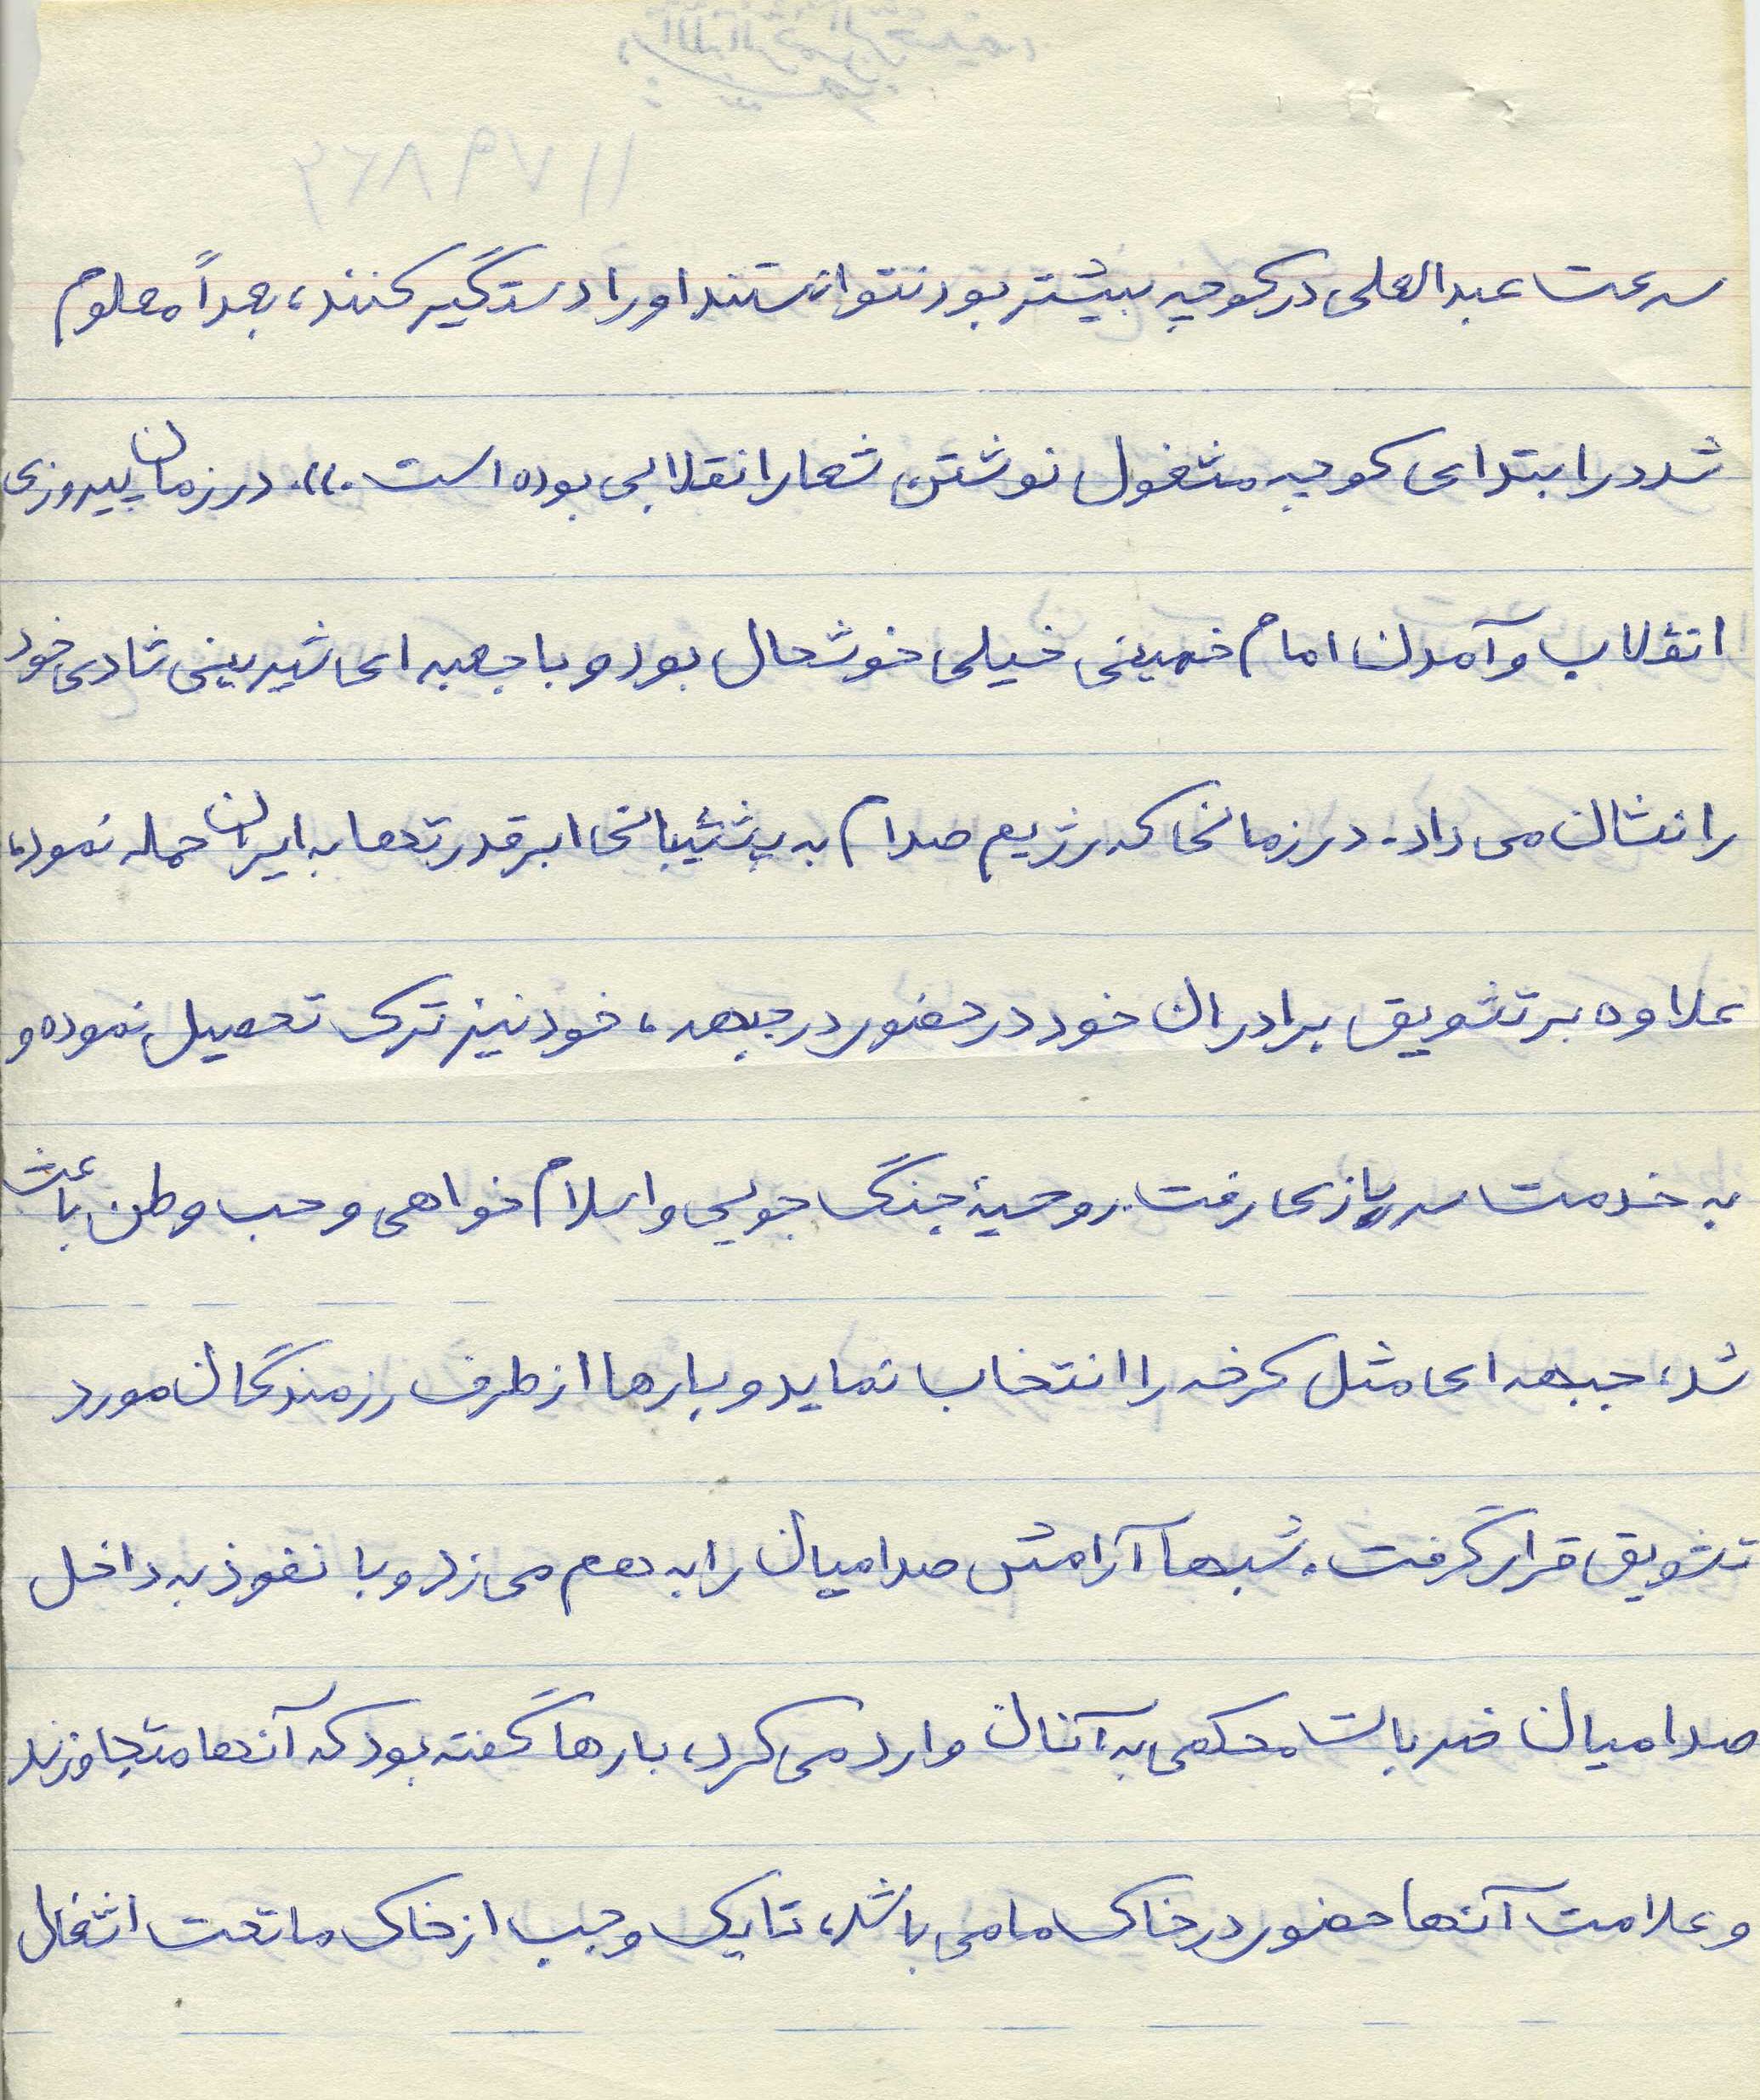 سرعت عبدالعلی در کوچه بیشتر بود نتوانستند او را دستگیر کنند، بعداً معلوم
شد در ابتدای کوچه مشغول نوشتن شعار انقلابی بوده است.». در زمان پیروزی
انقلاب و آمدن امام خمینی خیلی خوشحال بود و با جعبه ای شیرینی شادی خود
را نشان می داد. در زمانی که رژیم صدام به پشتیبانی ابرقدرتها به ایران حمله نمود،
علاوه بر تشویق برادران خود در حضور در جبهه، خود نیز ترک تحصیل نموده و
به خدمت سربازی رفت. روحیهٔ جنگ جویی و اسلام خواهی و حب وطن باعث
شد، جبهه ای مثل کرخه را انتخاب نماید و بارها از طرف رزمندگان مورد
تشویق قرار گرفت. شبها آرامش صدامیان را به هم می زد و با نفوذ به داخل
صدامیان ضربات محکمی به آنان وارد می کرد، بارها گفته بود که آنها متجاوزند
و علامت آنها حضور در خاک ما می باشد، تا یک وجب از خاک ما تحت اشغال